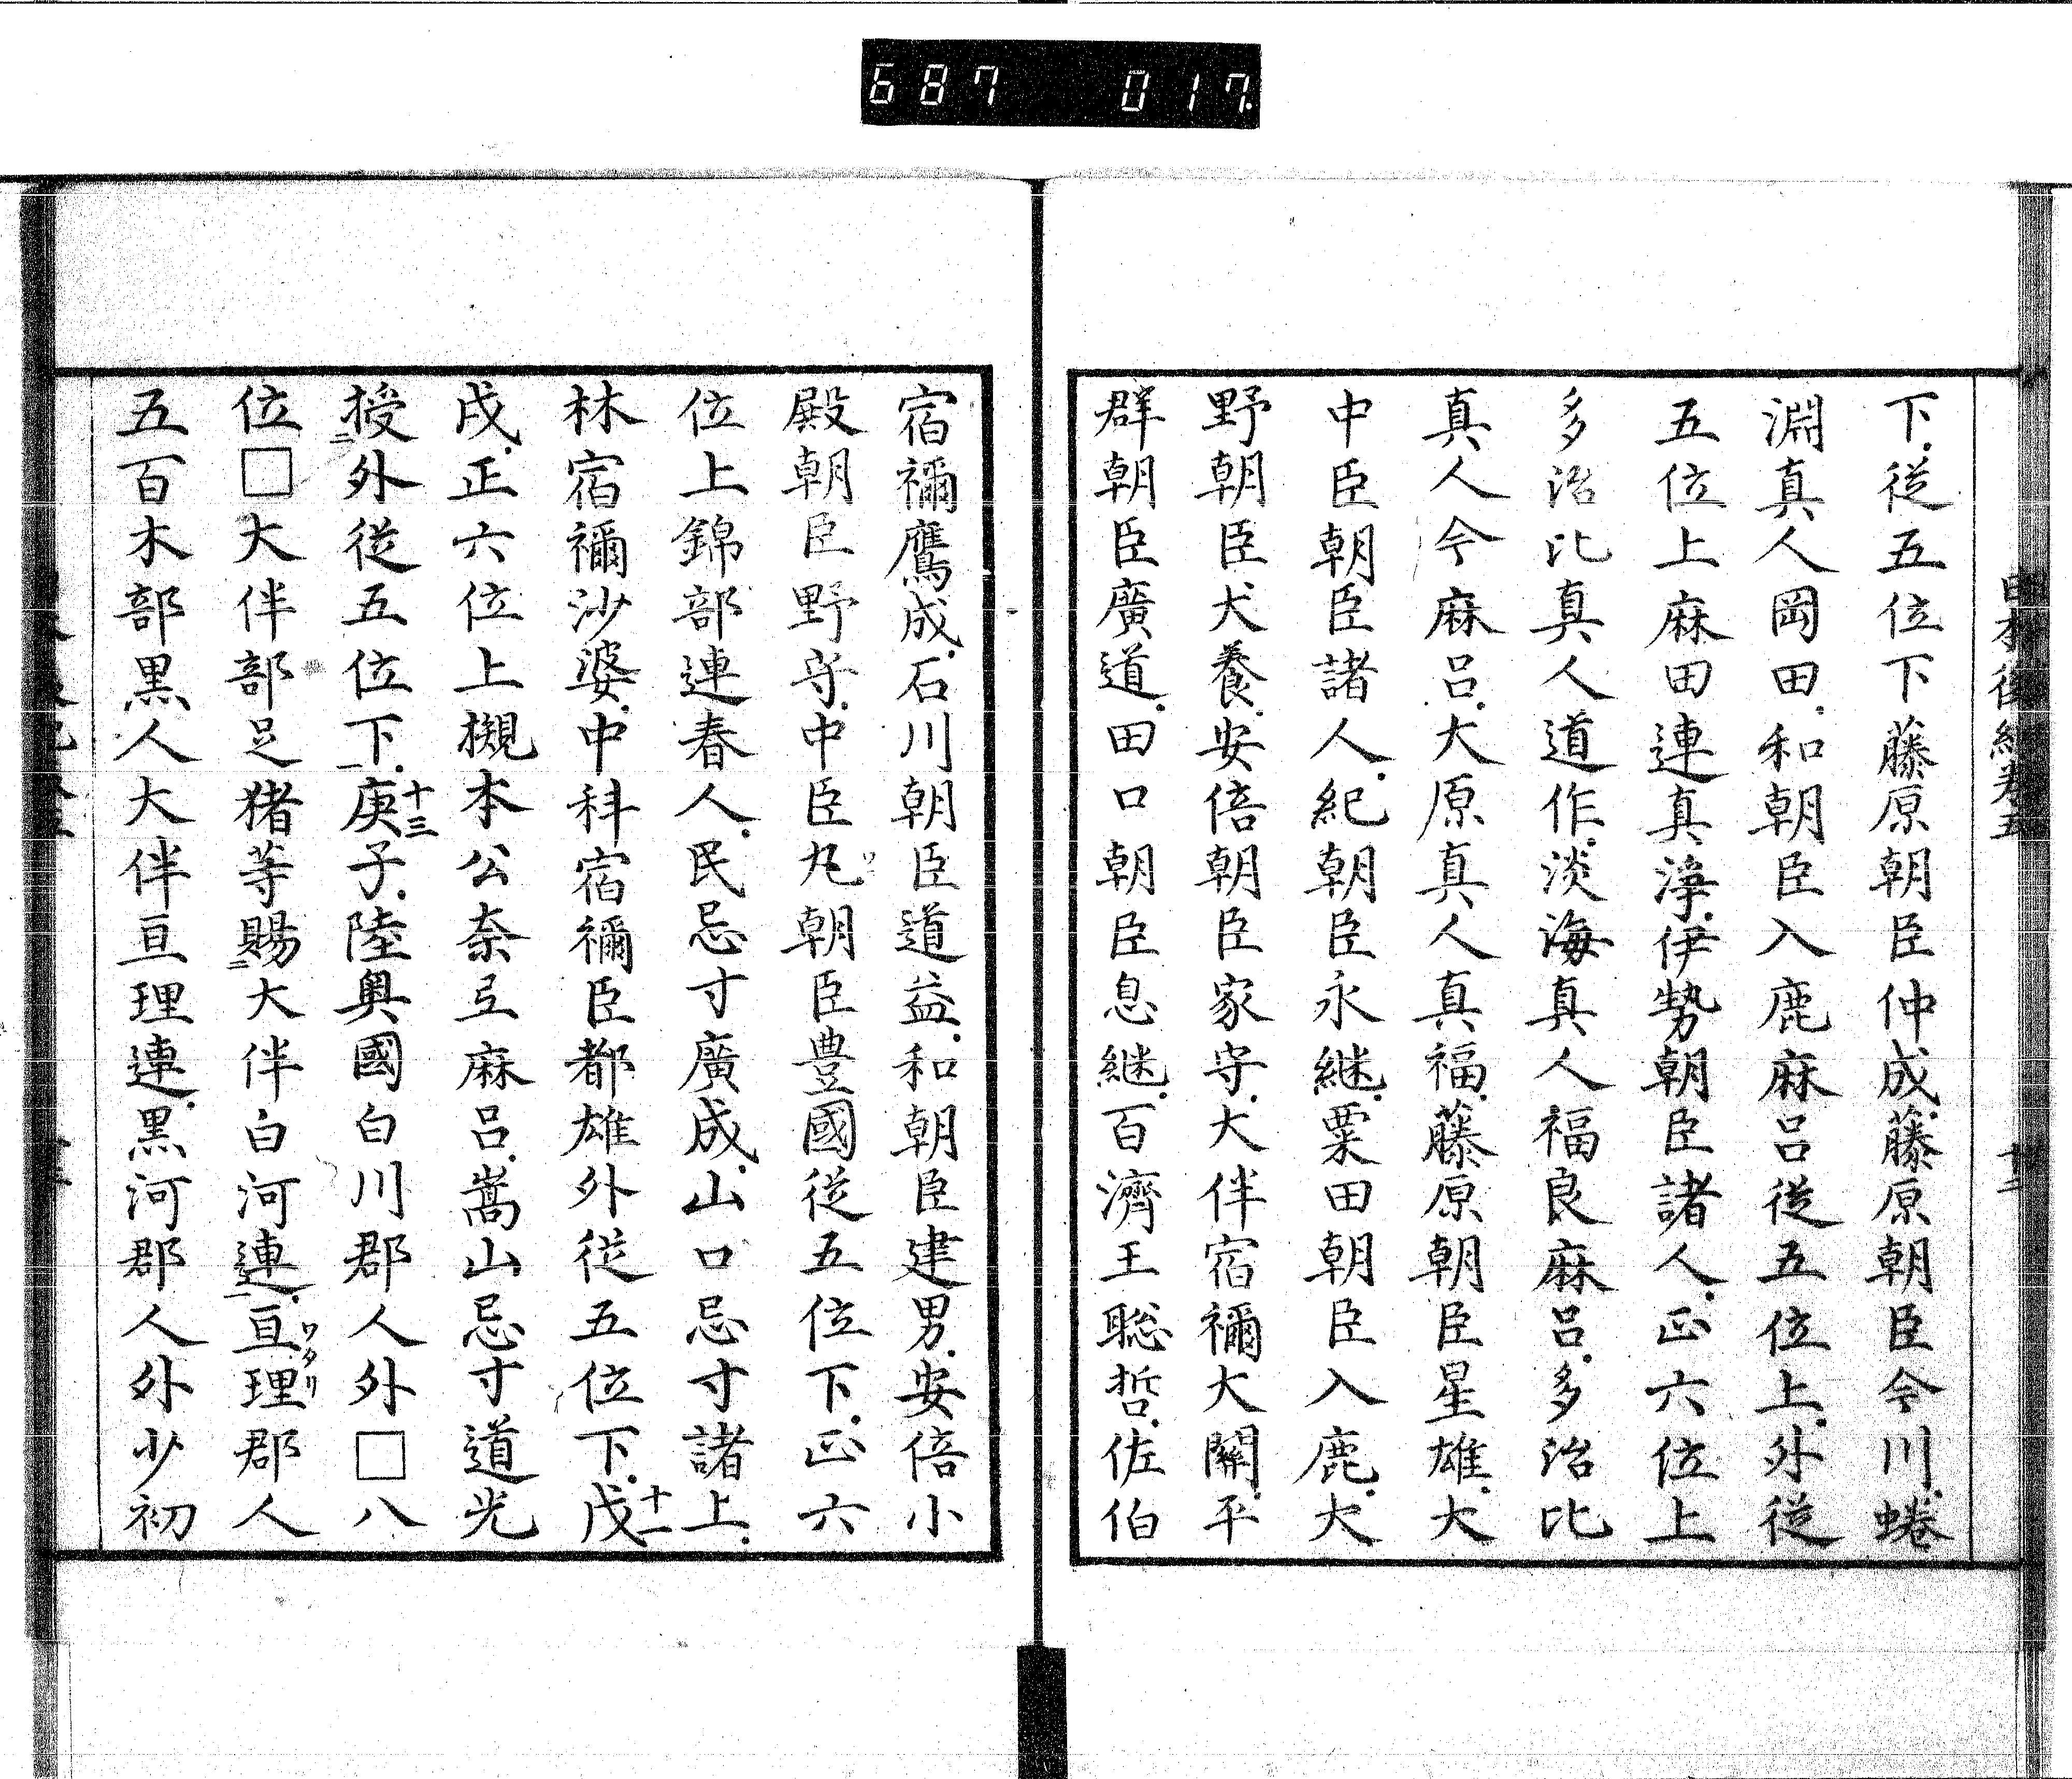 687 017
日本後紀卷五 十二
下從五位下藤原朝臣仲成藤原朝臣今川蜷
淵真人岡田和朝臣入鹿麻呂從五位上外從
五位上麻田連真淨伊勢朝臣諸人正六位上
多治比真人道作淡海真人福良麻呂多治比
真人今麻呂大原真人真福藤原朝臣星雄大
中臣朝臣諸人紀朝臣永継粟田朝臣入鹿大
野朝臣犬養安倍朝臣家守大伴宿禰大關平
群朝臣廣道田口朝臣息継百濟王聡哲佐伯
宿禰鷹成石川朝臣道益和朝臣建男安倍小
殿朝臣野守中臣丸朝臣豊國從五位下正六
位上錦部連春人民忌寸廣成山口忌寸諸上
林宿禰沙婆中科宿禰臣都雄外從五位下戊十一
戌正六位上槻本公奈弖麻呂嵩山忌寸道光
授二外從五位下一庚十三子陸奥國白川郡人外□八
位□大伴部足猪等賜二大伴白河連一亘理ワタリ郡人
五百木部黒人大伴亘理連黒河郡人外少初